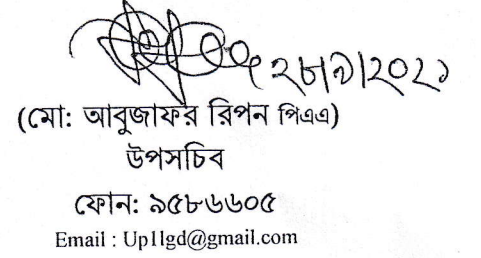 ২৮/৯/২০২১
(মো: আবুজাফর রিপন পিএএ)
উপসচিব
ফোন: ৯৫৮৬৬০৫
Email : Up1lgd@gmail.com